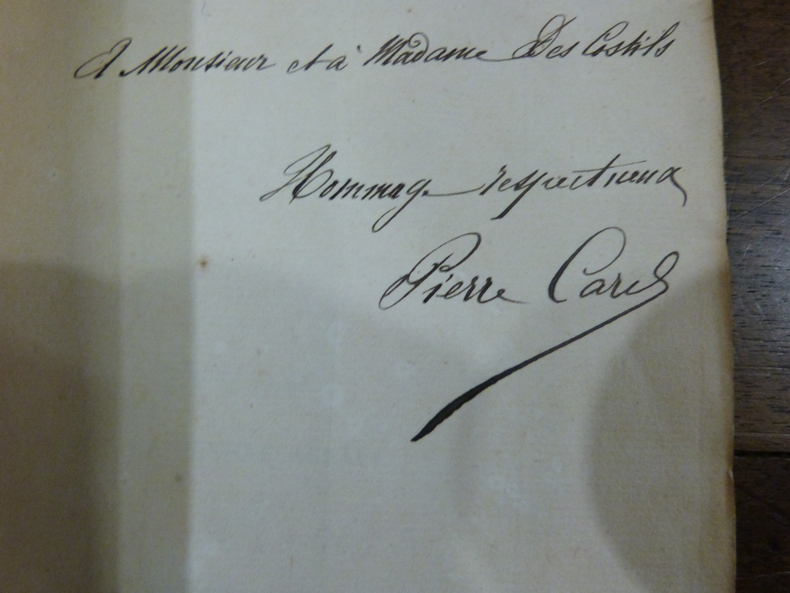 A Monsieur et à Madame Des Costils
Hommage respectueux
Pierre Carel